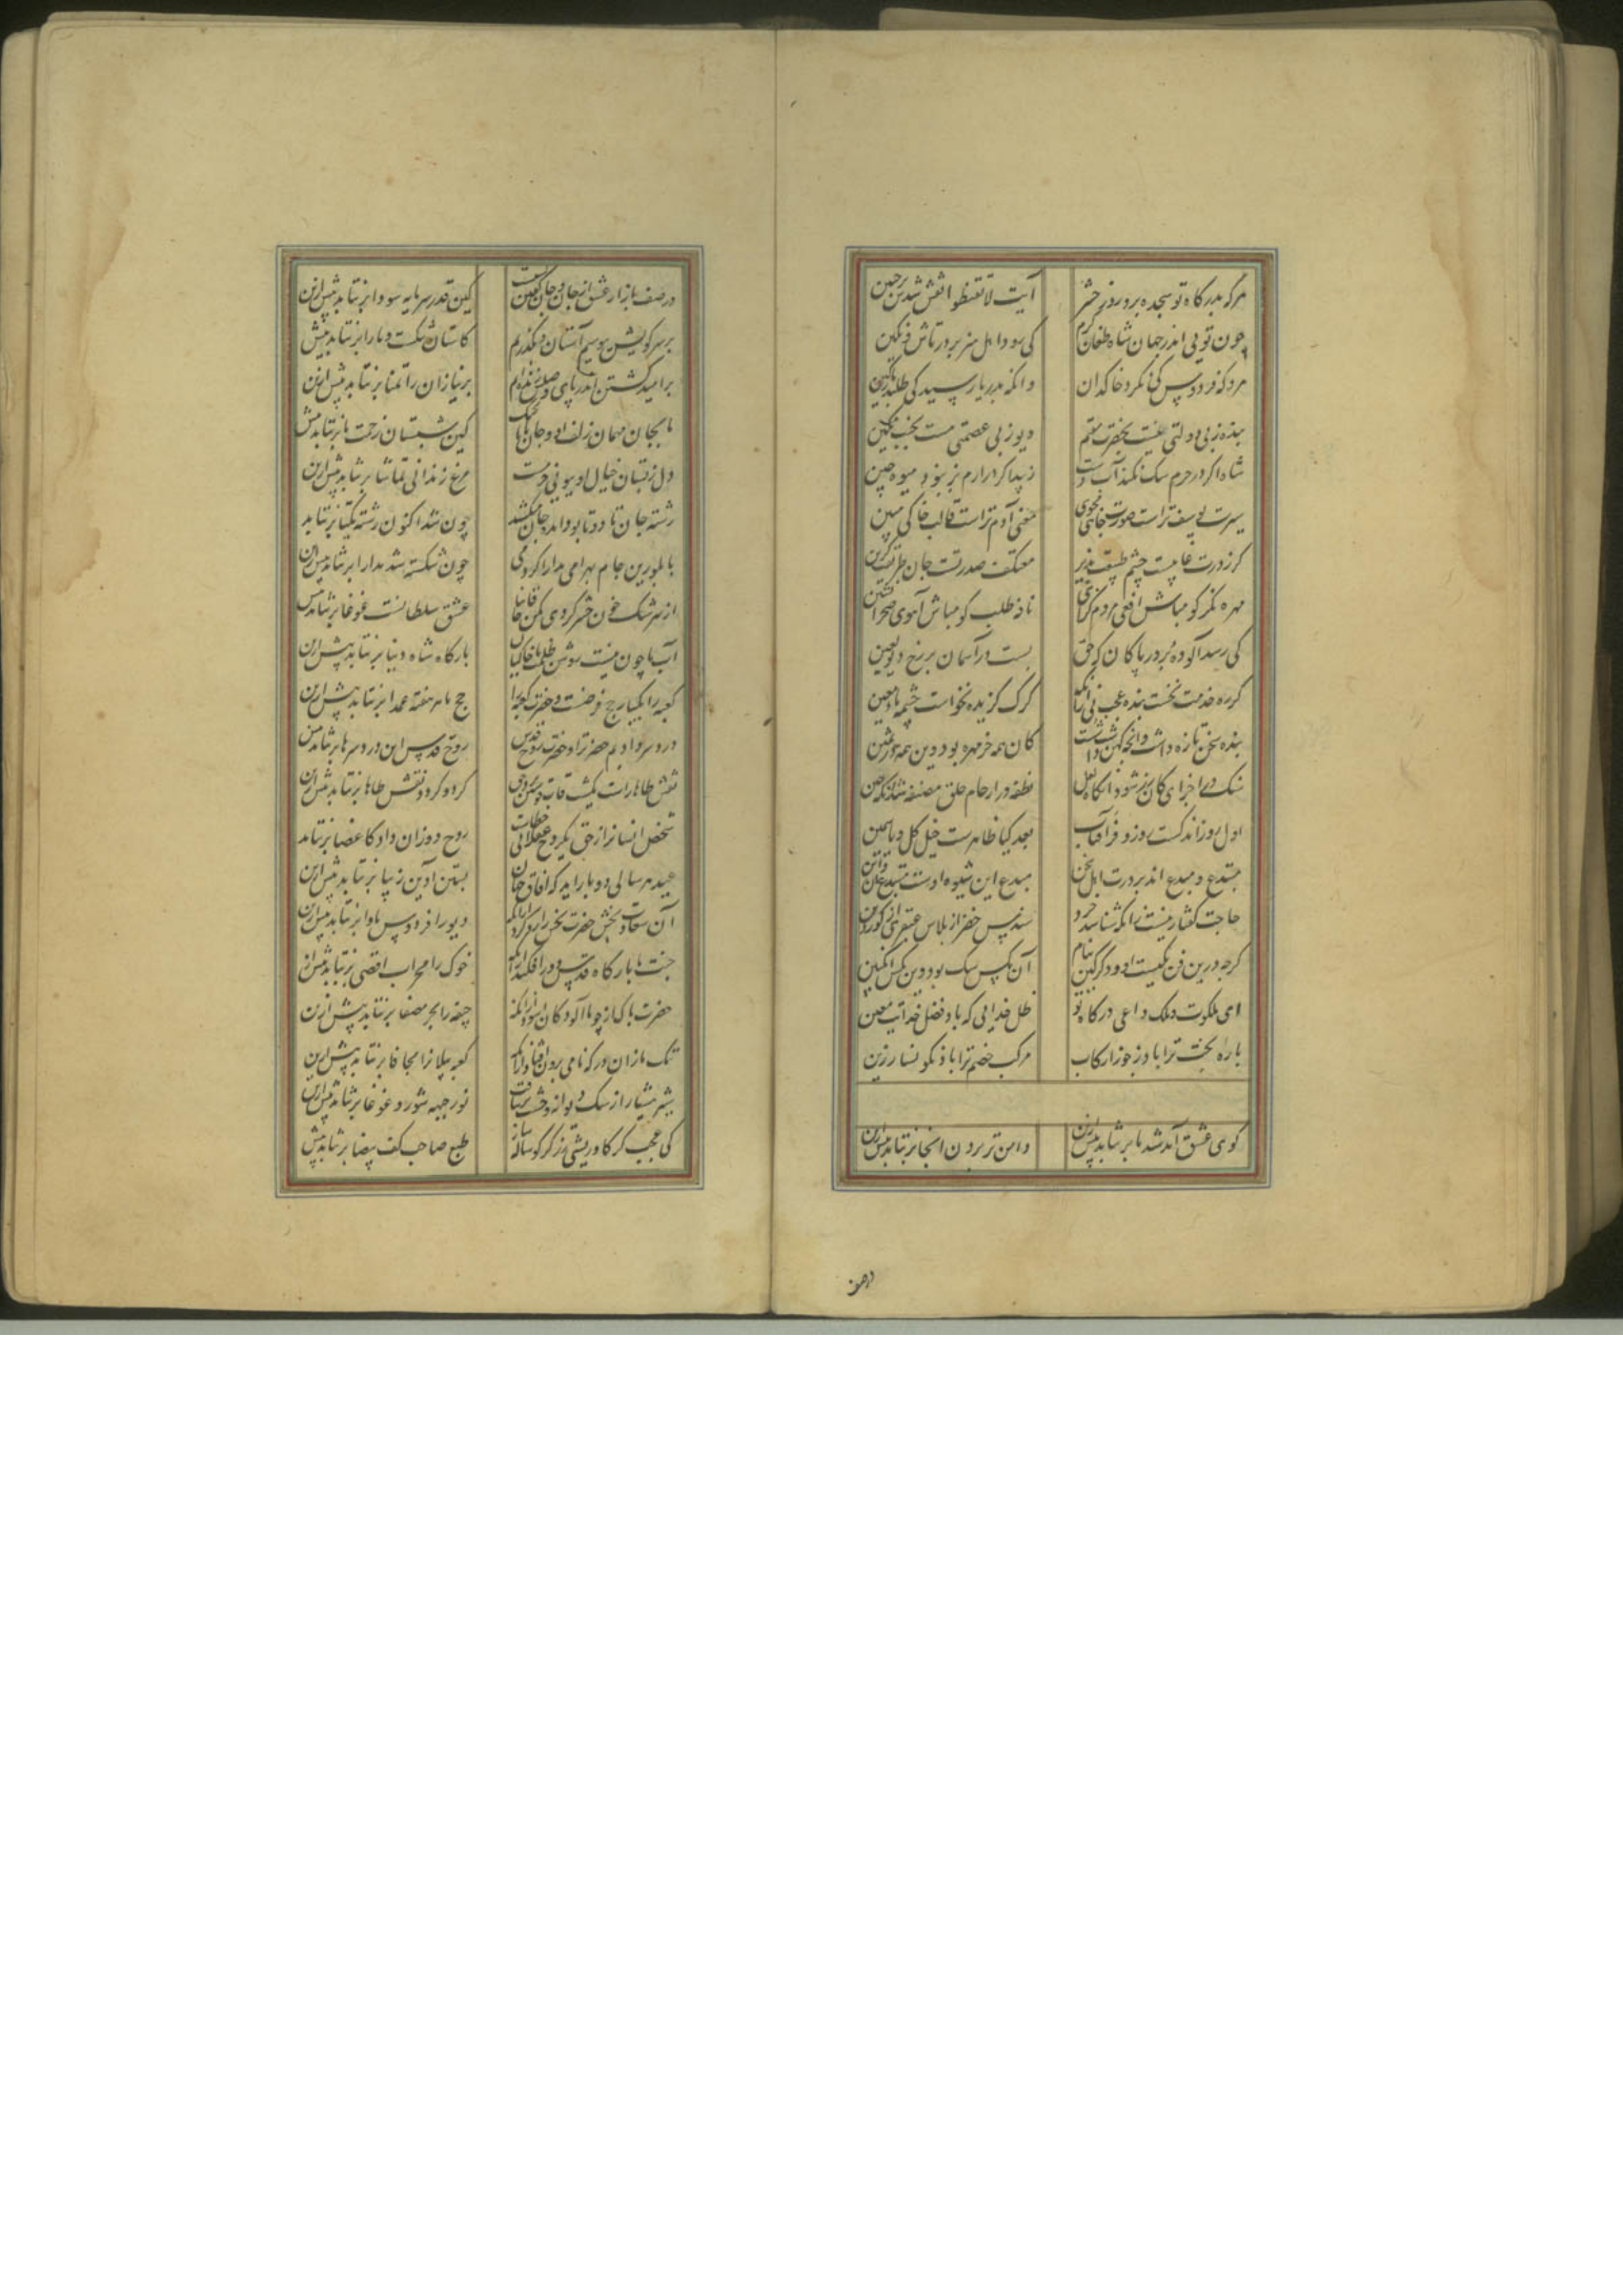 هرکه بدرگاه تو سجده برد روز حشر آیت لا تقنطوا نقش شدش بر جبین
چون تویی اندر جهان شاه طغان کرم کی رود اهل هنر بر در تاش و تکین
مرد که فردوس دید کی نگرد خاکدان وانکه بدریا رسید کی طلبد پارگین
بنده ز بی دولتی نیست بحضرت مقیم دیو ز بی عصمتی نیست بجنت مکین
شاها گر در حرم سگ نکند آب دست زیبد اگر در ارم بز نبود میوه چین
سیرت یوسف تراست صورت چاهی مجوی معنی آدم تراست قالب خاکی مبین
گر ز درت غایبست چشم طبیعت پذیر معتکف صدر تست جان طریقت گزین
مهره نگر گو مباش افعی مردم گزای نافه طلب گو مباش آهوی صحرا نشین
کی رسد آلوده بر در پاکان که حق بست در آسمان بر رخ دیو لعین
گر ره خدمت نجست بنده عجب نی زانک گرگ گزیده نخواست چشمه ماء معین
بنده سخن تازه داشت وانچه کهن داشت شست کان همه خرمهره بود وین همه در ثمین
سنگ در اجزای کان زرد شود آنگاه لعل نطفه در ارحام خلق مضغه شد آنگه جنین
اول روز اندکست روز و فر آفتاب بعد گیا ظاهرست خیل گل و یاسمین
مبتدع و مبدع اند بر درت اهل سخن مبدع این شیوه اوست مبتدع آن و این
حاجت گفتار نیست زانکه شناسد خرد سندس خضر از پلاس عبقری از گوردین
گرچه درین فن یکیست او و دگر کس بنام آن مگس سگ بود وین مگس انگبین
ای ملکوت و ملک داعی درگاه تو ظل خدایی که باد فضل خدایت معین
باره بخت ترا باد ز جوزا رکاب مرکب خصم ترا باد نگونسار زین
کوی عشق آمد شد ما برنتابد بیش ازین دامن تر بردن آنجا برنتابد بیش ازین
درصف
در صف بازار عشق از جان و جان کین قدر سرمایه سودا برنتابد بیش ازین
بر سر کویش ببوسیم آستان و بگذریم کاستان شکست و ما را برنتابد بیش
بر امید کشتن اندر پای وصلش زنده ام بر نیازان را تمنا برنتابد بیش ازین
ما بجان مهمان زلف او و جان ما کین شبستان زحمت ما برنتابد بیش
دل ز بستان خیال او ببویی خرمست مرغ زندانی تماشا برنتابد بیش ازین
رشته جان تا دو تا بود چون شد اکنون رشته یکتا برنتابد
با بلورین جام بهرامی مدارا کرد می چون شکسته شد مدارا برنتابد بیش ازین
از سرشک خون حشر کردی مکن خاقانیا عشق سلطانست غوغا برنتابد بیش
آب ما چون نیست روشن بارگاه شاه دنیا برنتابد بیش ازین
کعبه را یکبار حج فرضست و حضرت کعبه را حج ما هر هفته عمدا برنتابد بیش ازین
درد سر دادیم حضرت را و حضرت روح قدس روح قدس این درد سرها برنتابد بیش
نقش طاها گرد و گرد نقش طاها برنتابد بیش ازین
شخص انسان را ز حق یک روح روح دو زان داد کاعضا برنتابد
عید هر سالی دو بار آید که آفاق جهان بستن آذین زیبا برنتابد بیش ازین
آن سعادت بخش حضرت دیو را فردوس ماوا برنتابد بیش ازین
جنت ما بارگاه قدس دور افکند زانکه خوک را محراب اقصی برنتابد بیش از
حضرت پاک از چو ما آلودگان آسود زانکه جیفه را بحر مصفا برنتابد بیش ازین
ننگ ما زان درگه نامی برون افتاد زانکه کعبه پیلان را مجافا برنتابد بیش ازین
شیر هشیار از سگ دیوانه وحشت برنتافت نور جبهه شور و غوغا برنتابد بیش ازین
کی عجب گر گاو ریشی زرگر گوساله ساز طبع صاحب کف بیضا برنتابد بیش